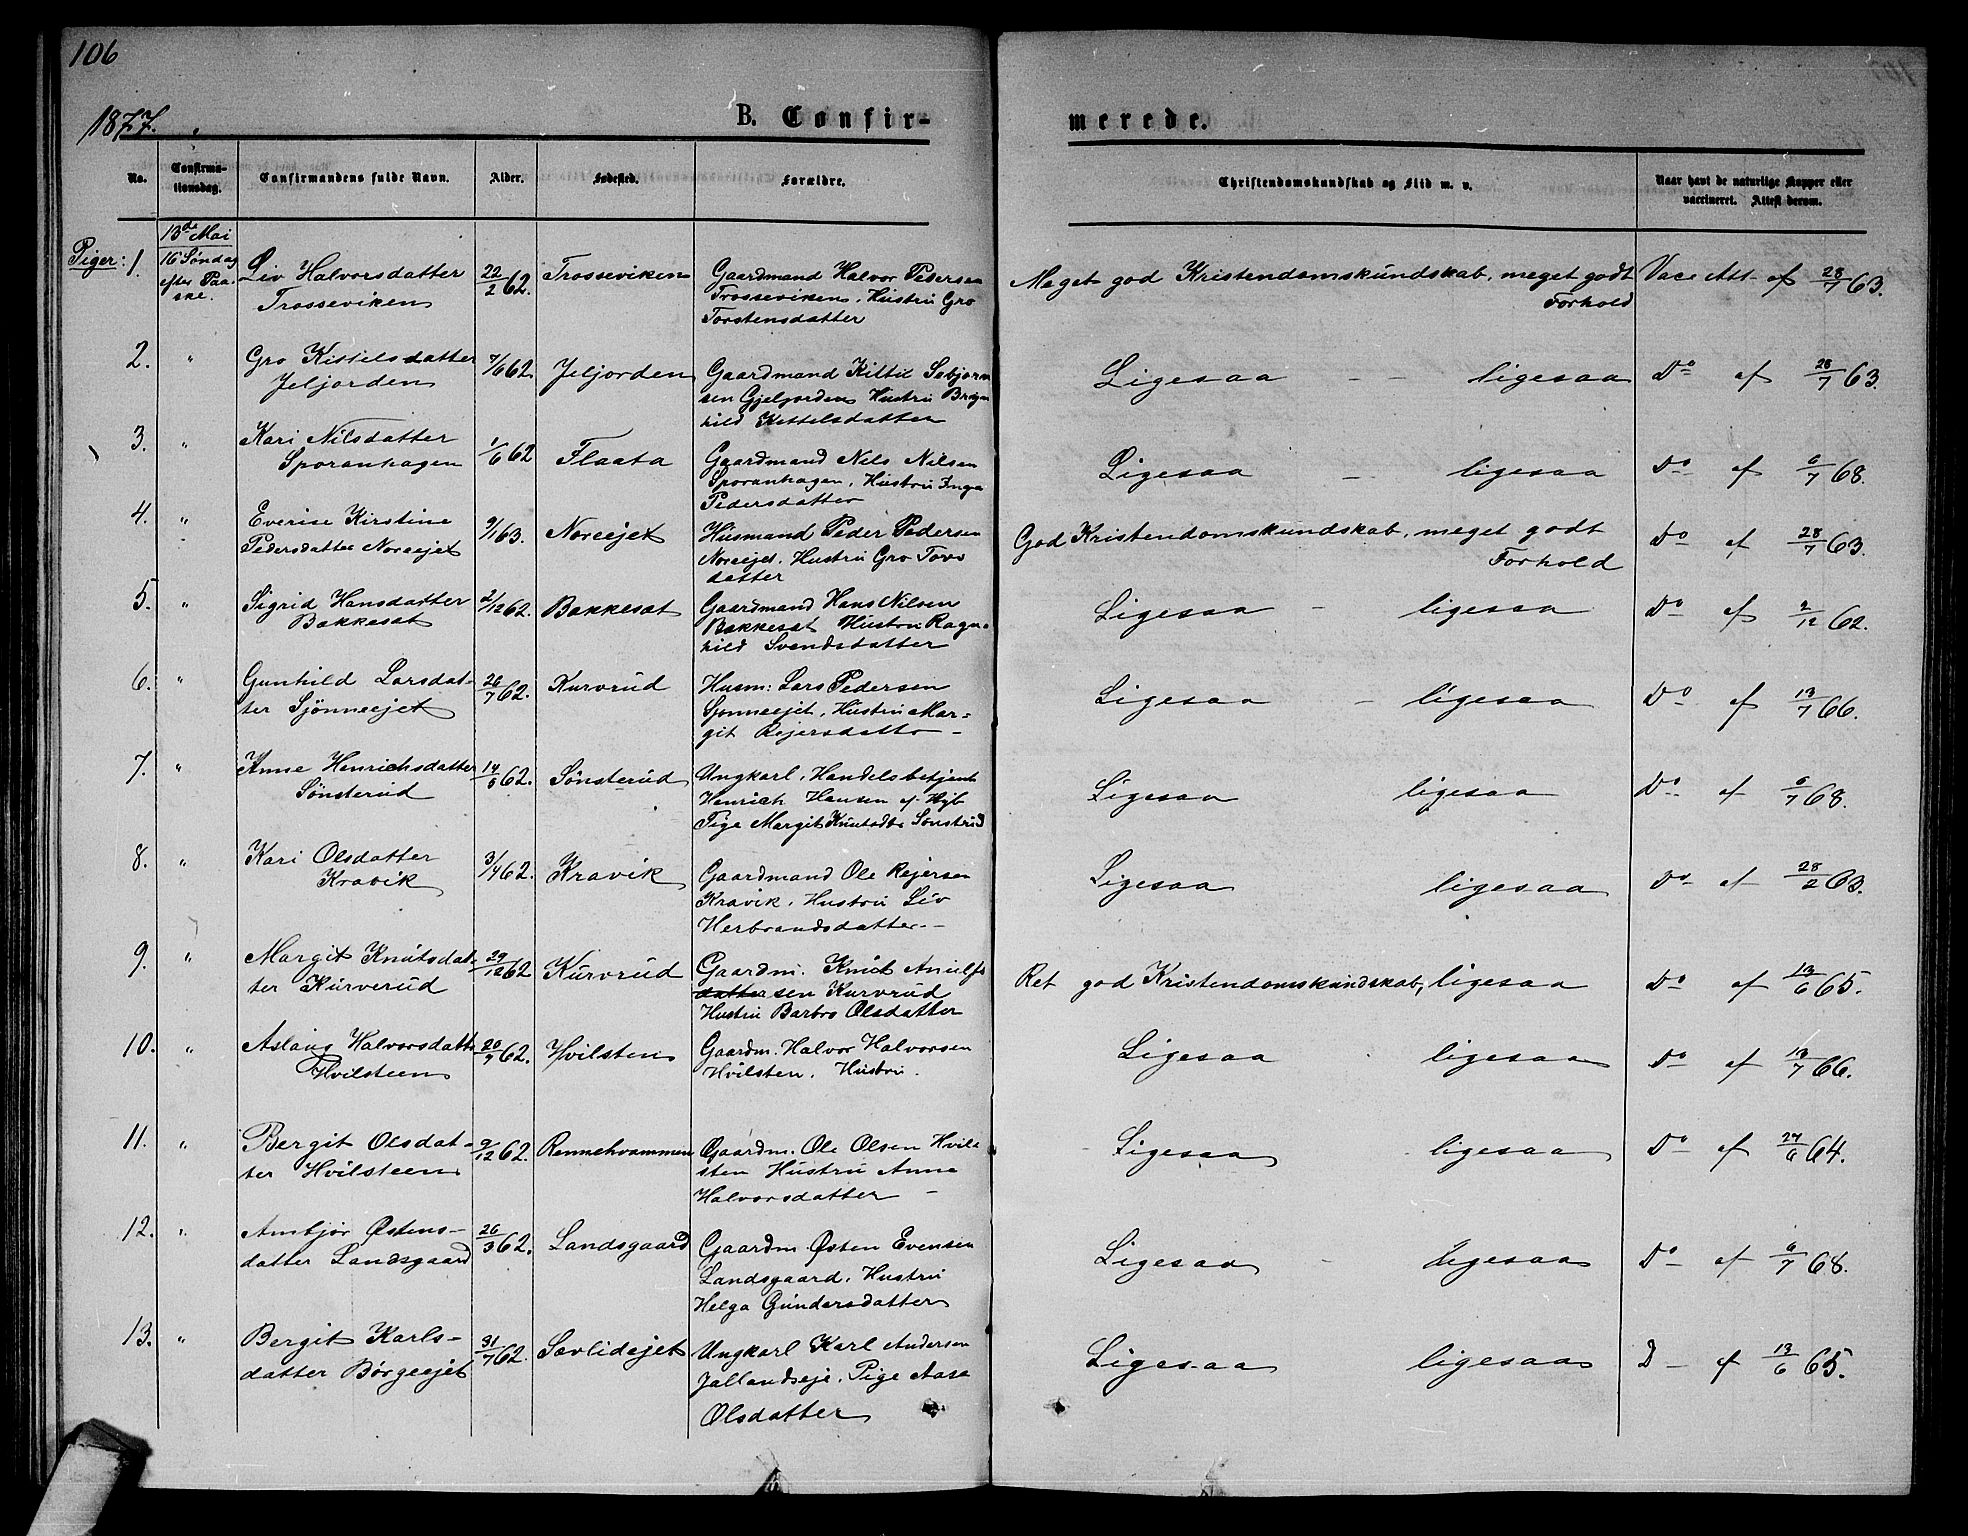 106
1877.
B. Confir-
merede.
No.
Confirma-
tionsdag.
Confirmandens fulde Navn.
Alder.
Fødested.
Forældre.
Christendomskundskab og Flid m. v.
Naar havt de naturlige Kopper eller
vaccineret. Attest derom.
Piger:
13de Mai
Søndag
efter Paa-
ske.
1. Liv Halvorsdatter 22/2 62. Trosseviken Gaardmand Halvor Pedersen Meget god Kristendomskundskab, meget godt Vacc Att. af 28/7 63.
Trosseviken Trosseviken, Hustru Gro Forhold
Torstensdatter
2. " Gro Kittelsdatter 7/6 62. Jeljorden Gaardmand Kittil Sebjørn Ligesaa - - ligesaa Do af 28/7 63.
Jeljorden sen Gjeljorden Hustru Bragn
hild Kittelsdatter
3. " Kari Nilsdatter 1/6 62 Flaata Gaardmand Nils Nilsen Ligesaa - ligesaa Do af 6/7 68.
Sporanhagen Sporanhagen, Hustru Inga
Pedersdatter
4. " Everise Kirstine 9/1 63. Noreejet Husmand Peder Pedersen God Kristendomskundskab, meget godt Do af 28/7 63.
Pedersdatter Noreejet Noreejet. Hustru Gro Tovs Forhold
datter
5. " Sigrid Hansdatter 2/12 62. Bakkesat Gaardmand Hans Nilsen Ligesaa - ligesaa Do af 2/12 62.
Bakkesat Bakkesat Hustru Ragn-
hild Svendsdatter
6. " Gunhild Larsdat- 26/7 62. Kurvrud Husm: Lars Pedersen Ligesaa - ligesaa Do af 13/7 66.
ter Sjønneejet Sjønneejet, Hustru Mar-
git Rejersdatter -
7. " Anne Henrichsdatter 14/6 62. Sønsterud Ungkarl, Handelsbetjent Ligesaa ligesaa Do af 6/7 68.
Sønsterud Henrich Hansen
Pige Margit Knutsdtr Sønstrud
8. " Kari Olsdatter 3/4 62. Kravik Gaardmand Ole Rejersen Ligesaa ligesaa Do af 28/2 63.
Kravik Kravik, Hustru Liv
Herbrandsdatter. -
9. " Margit Knutsdat- 29/12 62 Kurvrud Gaardm. Knut Ret god Kristendomskundskab, ligesaa Do af 13/6 65.
ter Kurverud datter sen Kurvrud
Hustru Barbro Olsdatter
10. " Aslaug Halvorsdatter 20/9 62. Hvilsten Gaardm. Halvor Halvorsen Ligesaa ligesaa Do af 13/7 66.
Hvilsteen Hvilsten. Hustru.
11. " Bergit Olsdat- 9/12 62. Rennehvammen Gaardm. Ole Olsen Hvil- Ligesaa ligesaa Do af 24/6 64.
ter Hvilsteen sten Hustru Anne
Halvorsdatter -
12. " Ambjør Østens- 26/3 62. Landsgaard Gaardm. Østen Evensen Ligesaa - ligesaa Do af 6/7 68.
datter Landsgaard Landsgaard. Hustru
Helga Gundersdatter
13. " Bergit Karls- 31/7 62. Sævlidejet Ungkarl Karl Andersen Ligesaa ligesaa D - af 13/6 65.
datter Børgeejet Jallandseje. Pige Aase
Olsdatter